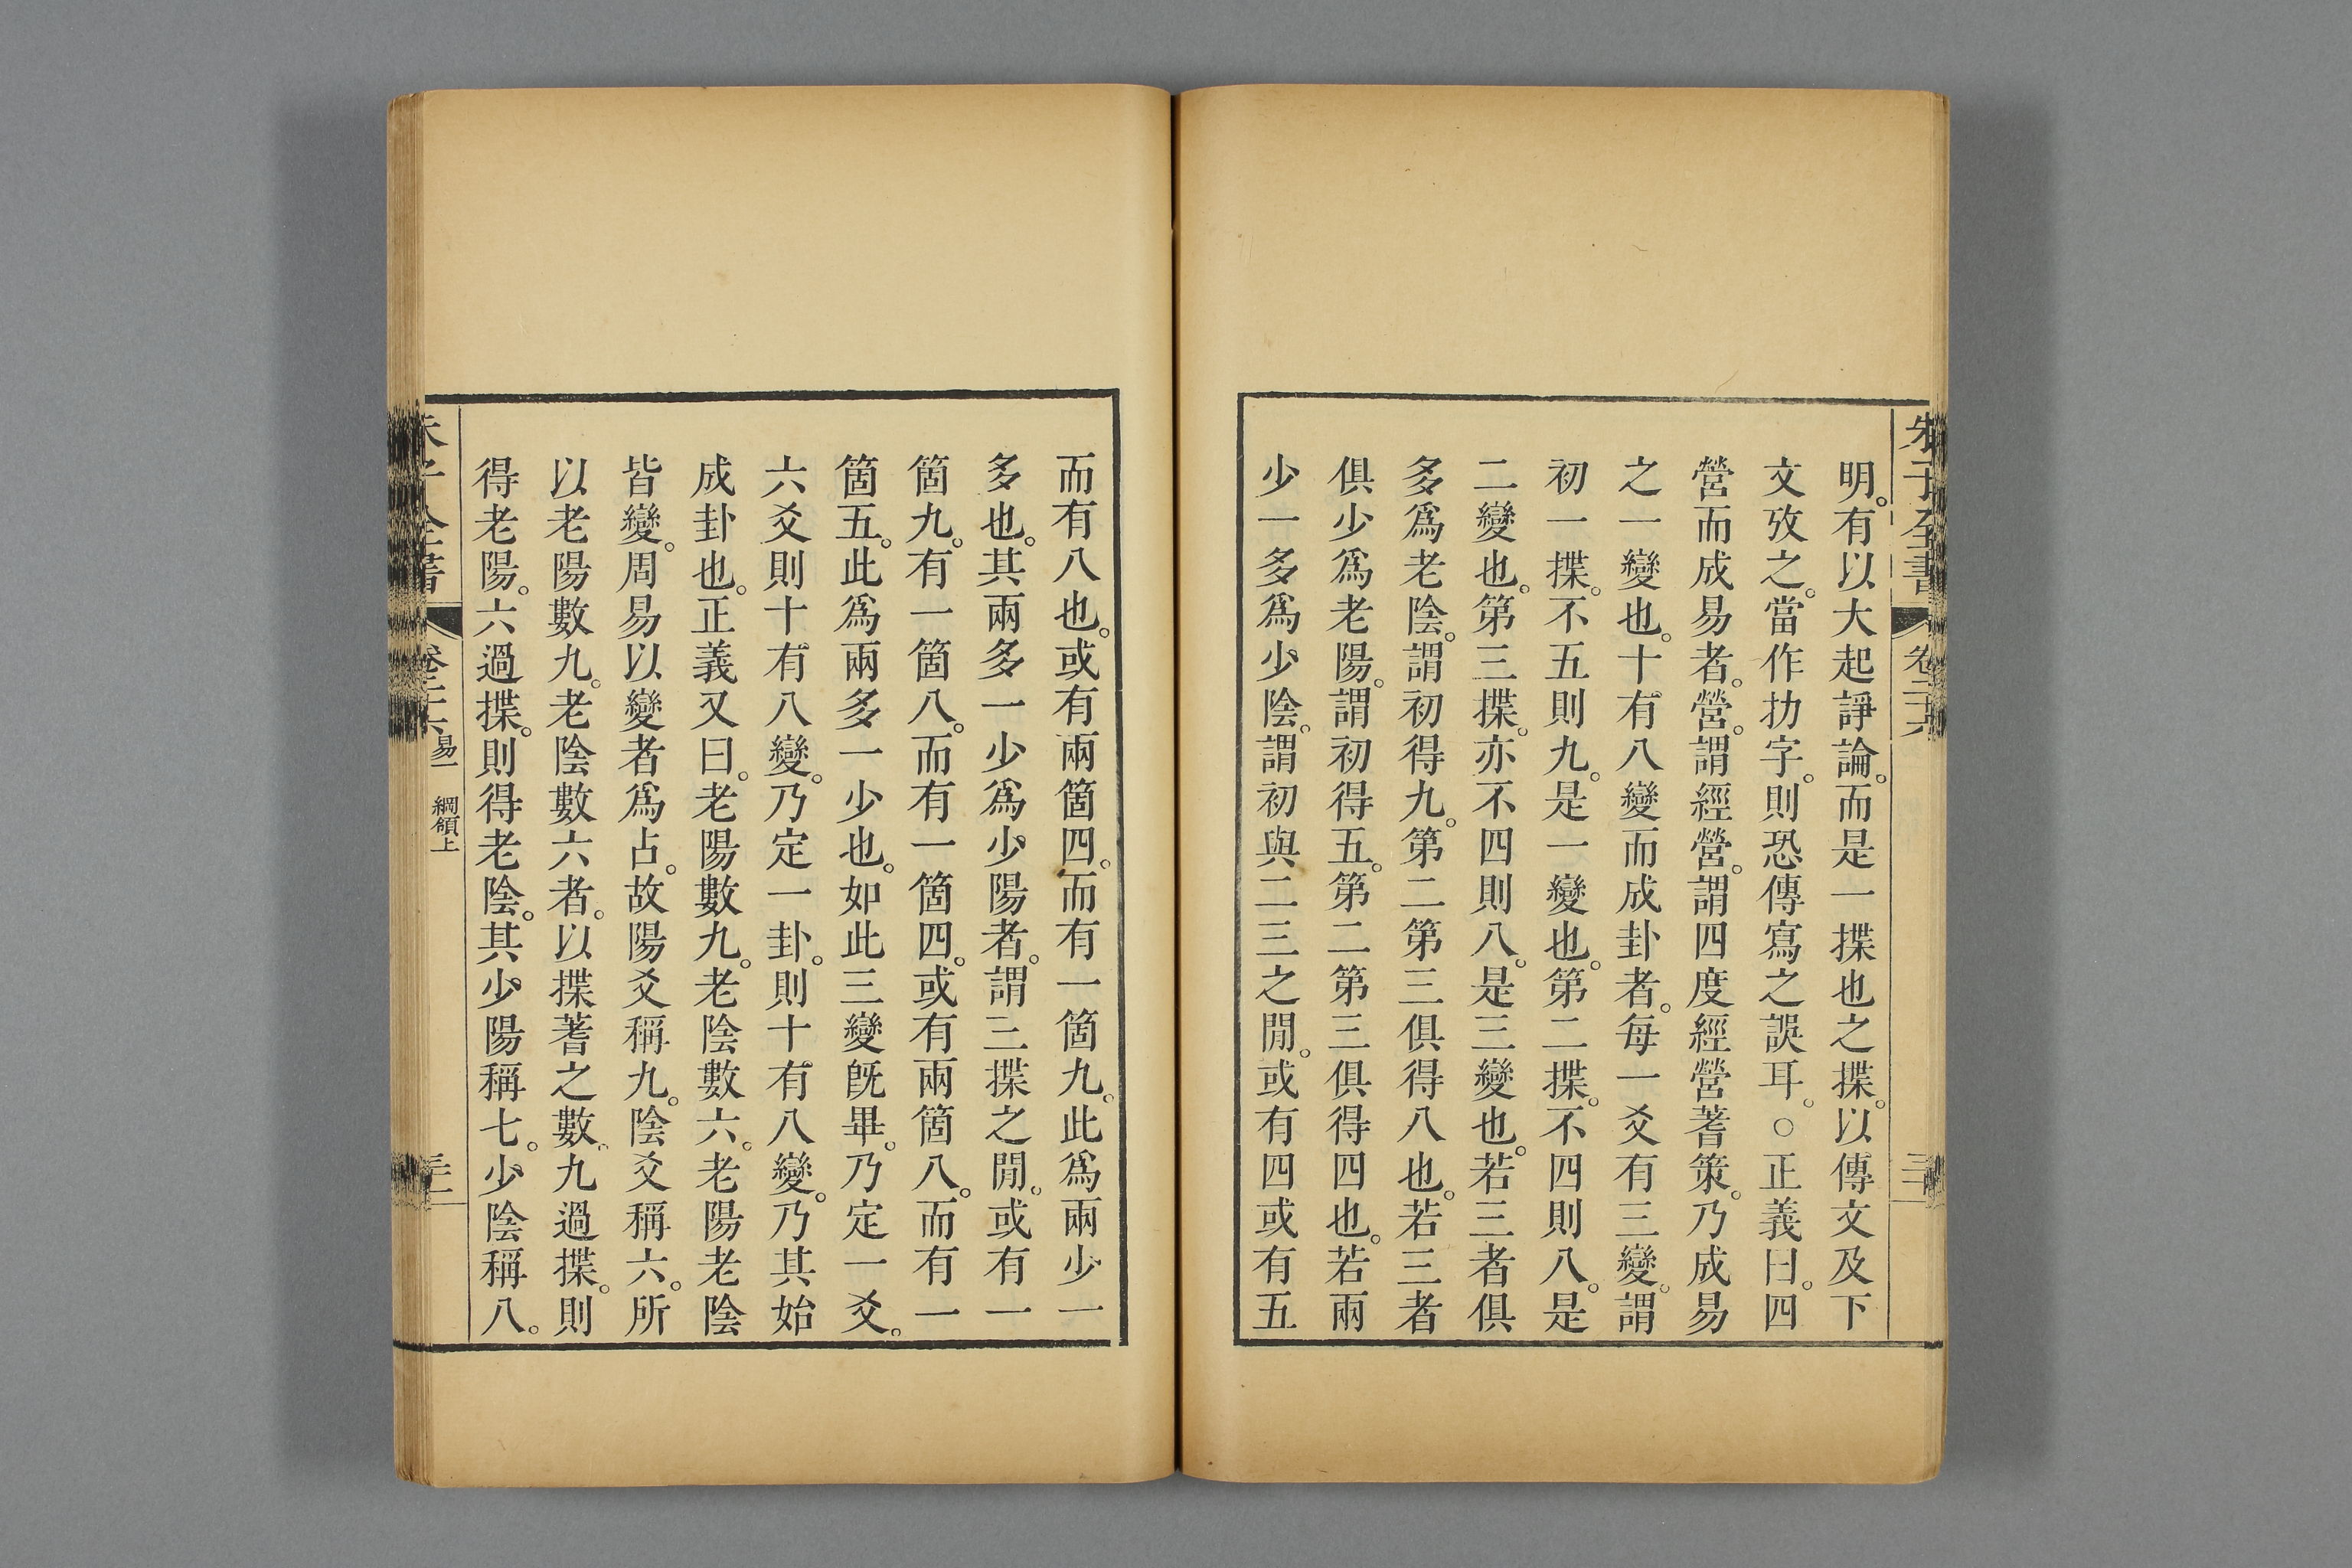 朱子全書
卷二十六
明。有以大起諍論。而是一揲也之揲。以傳文及下
文攷之。當作扐字。則恐傳寫之誤耳。○正義曰。四
營而成易者。營。謂經營。謂四度經營蓍策。乃成易
之一變也。十有八變而成卦者。每一爻有三變。謂
初一揲。不五則九。是一變也。第二揲。不四則八。是
二變也。第三揲。亦不四則八。是三變也。若三者俱
多爲老陰。謂初得九。第二第三俱得八也。若三者
俱少爲老陽。謂初得五。第二第三俱得四也。若兩
少一多爲少陰。謂初與二三之閒。或有四或有五
而有八也。或有兩箇四。而有一箇九。此爲兩少一
多也。其兩多一少爲少陽者。謂三揲之閒。或有一
箇九。有一箇八。而有一箇四。或有兩箇八。而有一
箇五。此爲兩多一少也。如此三變旣畢。乃定一爻。
六爻則十有八變。乃定一卦。則十有八變。乃其始
成卦也。正義又曰。老陽數九。老陰數六。老陽老陰
皆變。周易以變者爲占。故陽爻稱九。陰爻稱六。所
以老陽數九。老陰數六者。以揲蓍之數。九過揲。則
得老陽。六過揲。則得老陰。其少陽稱七。少陰稱八。
朱子全書
易一 綱領上